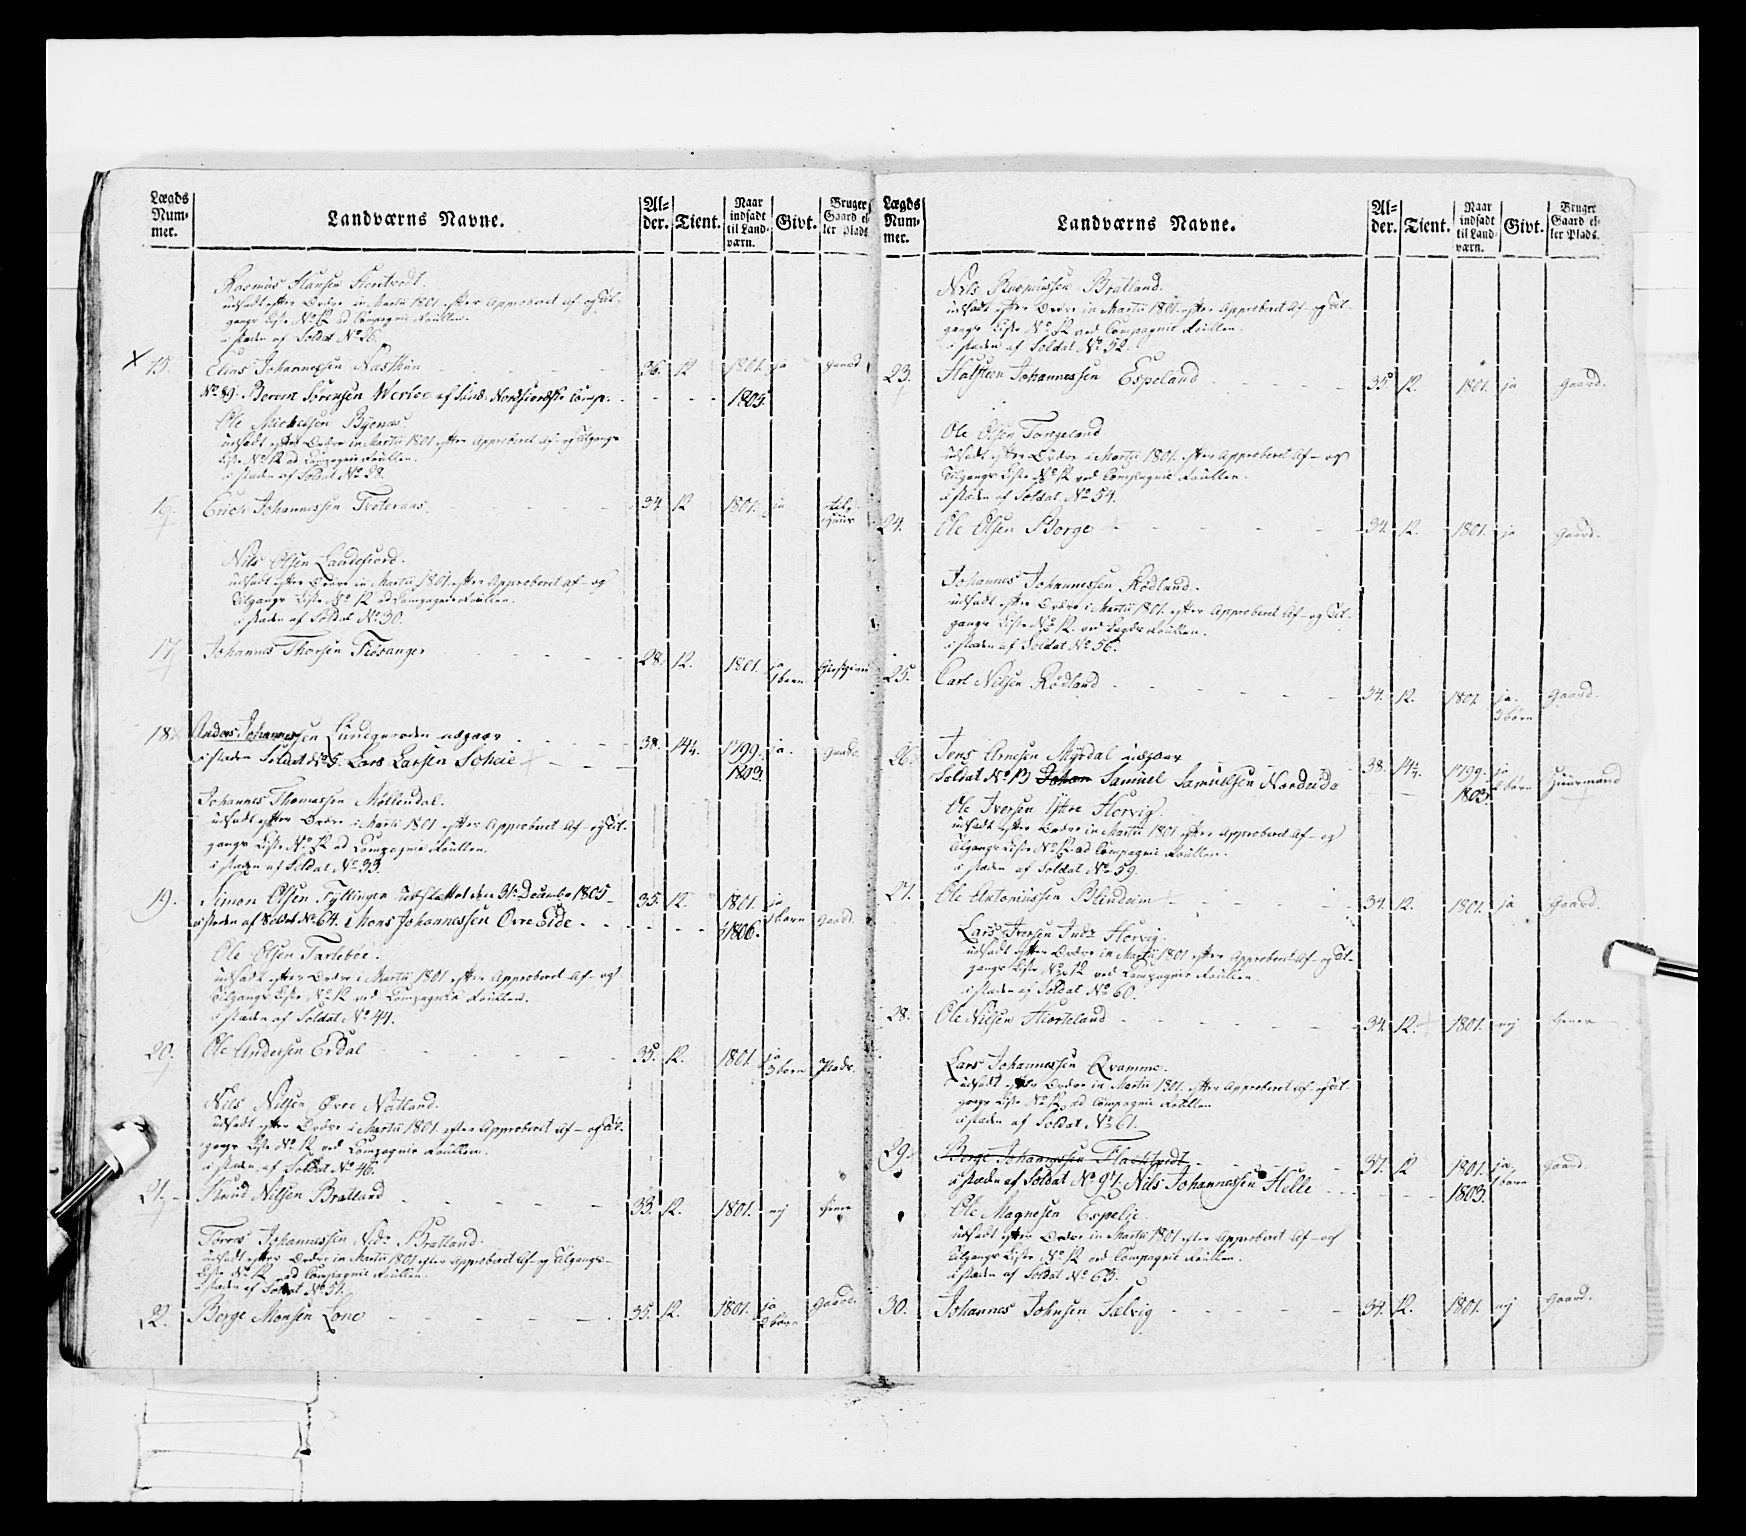 Lægds Num-mer. Landværns Navne. Al-der. Tient. Naar indsadt til Land-værn. Givt. Bruger Gaard el-ler Plads.
Rasmus Hansen
udsadt efter Ordre in Martii 1801 efter Approberet Af- og Til-
gangs Liste No 12 ad Compagnie Roullen.
i staden af Soldat No 26.
15. Elias Johannessen Næsthun 36. 12 1801. ja Gaard
No 29. Berent Sörensen Werløe af Sønd: Nordfiordske Comp. 1803.
Ole Michelsen Byenæs
udsadt efter Ordre in Martii 1801 efter Approberet Af- og Tilgangs
Liste No 12 ad Compagnie Roullen.
i staden af Soldat No 28.
16. Erich Johannessen 34. 12 1801. ja
Nils Olsen
udsadt efter Ordre in Martii 1801 efter Approberet Af- og
Tilgangs Liste No 12 ad Compagnie Roullen.
i staden af Soldat No 30.
17. Johannes Thorsen Fiösanger 28. 12. 1801. ja
1 barn
18. Anders Johannessen udgaar 38. 14¼. 1799. ja. Gaard.
i staden Soldat No 5. Lars Larsen Scheie 1803
Johannes Thomassen Möllendal.
udsadt efter Ordre i Martii 1801 efter Approberet Af- og Til-
gangs Liste No 12 ad Compagnie Roullen.
i staden af Soldat No 33.
19. Simon Olsen Fyllingen udslettet den 31te December 1805 35. 12. 1801. ja
i staden af Soldat No 64. Mons Johannessen Øvre Eide. 1806. barn Gaard.
Ole Olsen Tarleböe.
udsadt efter Ordre i Martii 1801 efter Approberet Af- og
Tilgangs Liste No 12 ved Compagnie Roullen.
i staden af Soldat No 44.
20. Ole Andersen Erdal 35. 12. 1801. ja
3 børn Plads.
Nils Nilsen Øvre Natland.
udsadt efter Ordre i Martii 1801 efter Approberet Af- og Til-
gangs Liste No 12 ved Compagnie Roullen.
i staden af Soldat No 46.
21. Knud Nilsen Bratland 33. 12. 1801. nej tiener
Torres Johannessen Nedr Bratland.
udsadt efter Ordre in Martii 1801 efter Approberet Af- og Tilgangs-
Liste No 12 ad Compagnie Roullen.
i staden af Soldat No 51.
22. Berge Monsen Lone 35. 12. 1801. ja Gaard.
2 børn
Lægds Num-mer. Landværns Navne. Al-der. Tient. Naar indsadt til Land-værn. Givt. Bruger Gaard el-ler Plads.
Nils Rasmussen Bratland.
udsadt efter Ordre in Martii 1801 efter Approberet Af- og Til-
gangs Liste No 12 ved Compagnie Roullen.
i staden af Soldat No 52.
23. Halsteen Johannessen Espeland 35. 12. 1801. ja Gaard.
Ole Olsen Tangeland
udsadt efter Ordre i Martii 1801. efter Approberet Af- og
Tilgangs Liste No 12 ved Compagnie Roullen.
i staden af Soldat No 54.
24. Ole Olsen Borge 34. 12. 1801. ja Gaard.
Johannes Johannessen Rødland.
udsadt efter Ordre i Martii 1801. efter Approberet Af- og Til-
gangs Liste No 12. ved Lægds Roullen.
i staden af Soldat No 56.
25. Carl Nilsen Rødland 34. 12. 1801 ja. Gaard.
3 børn
26. Jens Arnesen Myrdal udgaar 38. 14¼. 1799. ja
Soldat No 13 Johan Samuel Samuelsen Nordeide 1803. 1 barn Huusmand
Ole Iversen Yttre Horvig.
udsadt efter Ordre in Martii 1801 efter Approberet Af- og
Tilgangs Liste No 12 ad Compagnie Roullen.
i staden af Soldat No 59.
27. Ole Antoniussen Blindeim 34. 12. 1801. ja Gaard.
Lars Iversen Indr Horvig.
udsadt efter Ordre in Martii 1801 efter Approberet Af- og Til-
gangs Liste No 12 ved Compagnie Roullen.
i staden af Soldat No 60.
28. Ole Nilsen Hiorteland 34. 12. 1801. nej tiener
Lars Johannessen Qvamme.
udsadt efter Ordre in Martii 1801. efter Approberet Af- og Til-
gangs Liste No 12 ad Compagnie Roullen
i staden af Soldat No 61.
29. Berge Johannessen 37. 12 1801. ja, Gaard.
i staden af Soldat No 91. Nils Johannessen Helle 1803. 1 barn
Ole Magnesen Espelie.
udsadt efter Ordre in Martii 1801 efter Approberet Af- og
Tilgangs Liste No 12 ved Compagnie Roullen.
i staden af Soldat No 63.
30. Johannes Johnsen Sælvig 34. 12. 1801. nej Gaard.